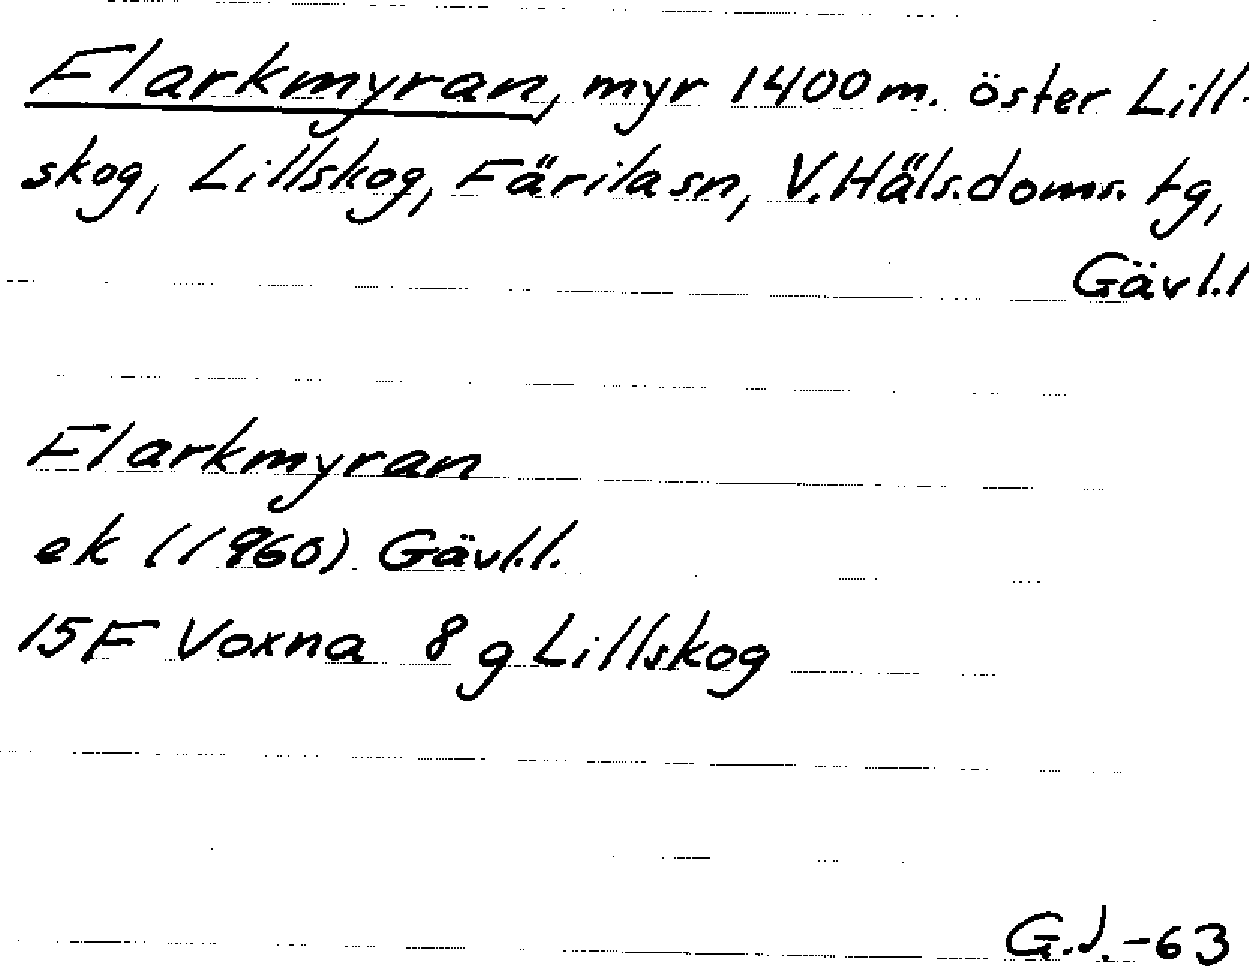 Flarkmyran, myr 1400 m. öster Lill-
skog, Lillskog, Färila sn, V. Häls. doms. tg,
Gävl.l
Flarkmyran
ek (1960) Gävl.l.
15F Voxna 8 g Lillskog
G.J.-63